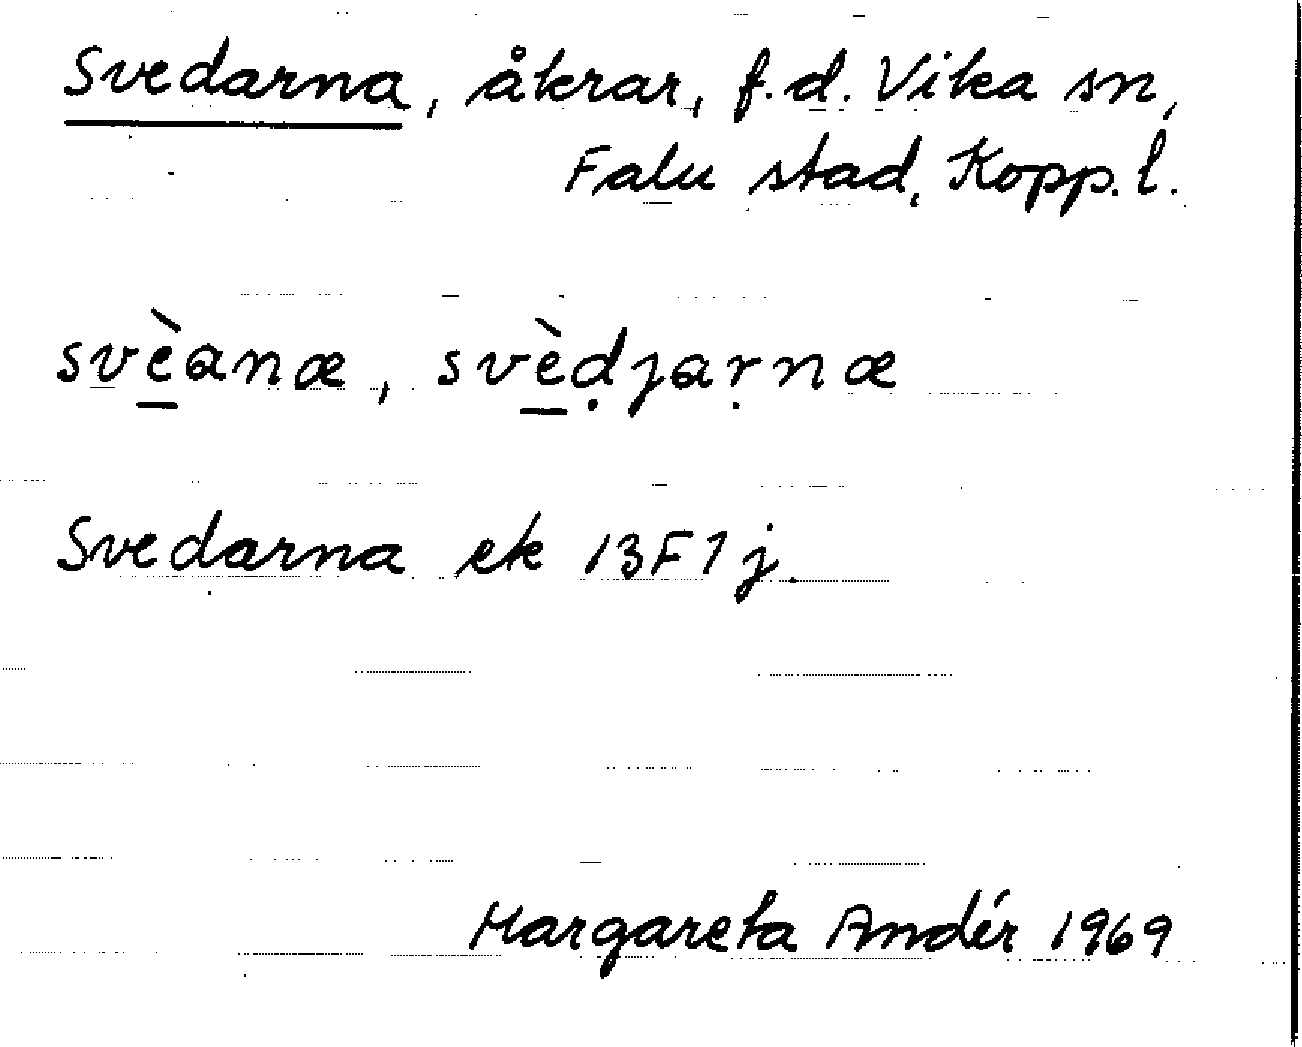 Svedarna, åkrar, f.d. Vika sn,
Falu stad, Kopp. l.
svè̲anæ, svè̲ḍjaṛnæ
Svedarna ek 13F7j.
Margareta Andér 1969